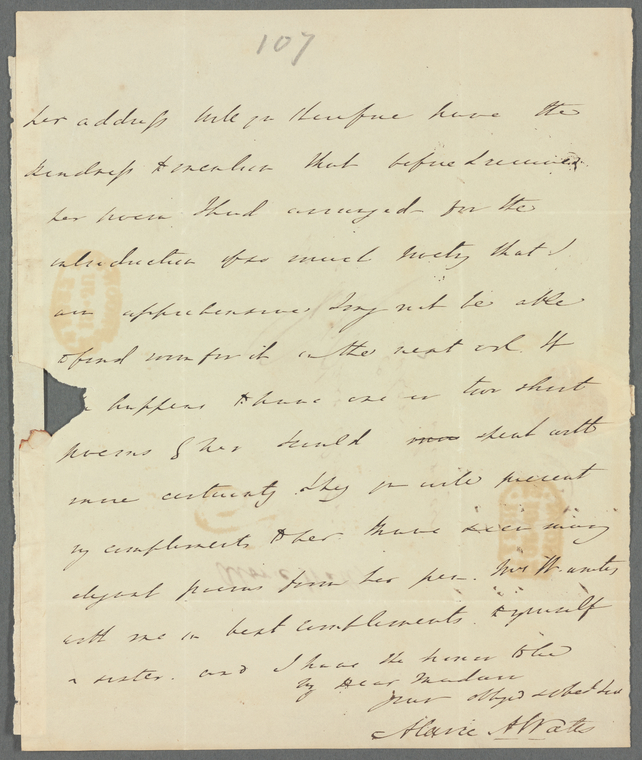 107
her address Will you therefore have the
kindness to mention that before I received
her poem I had arranged for the
introduction of so much poetry that I
am apprehensive I may not be able
to find room for it in the next vol. If
happens to have one or two short
poems of her I could speak with
more certainty. I beg you will present
my compliments to her I have seen many
elegant poems from her pen. Mrs W. unites
with me in best compliments to yourself
& sister. and I have the honor to be
My Dear Madam
your obliged & obed Ser
Alaric A Watts